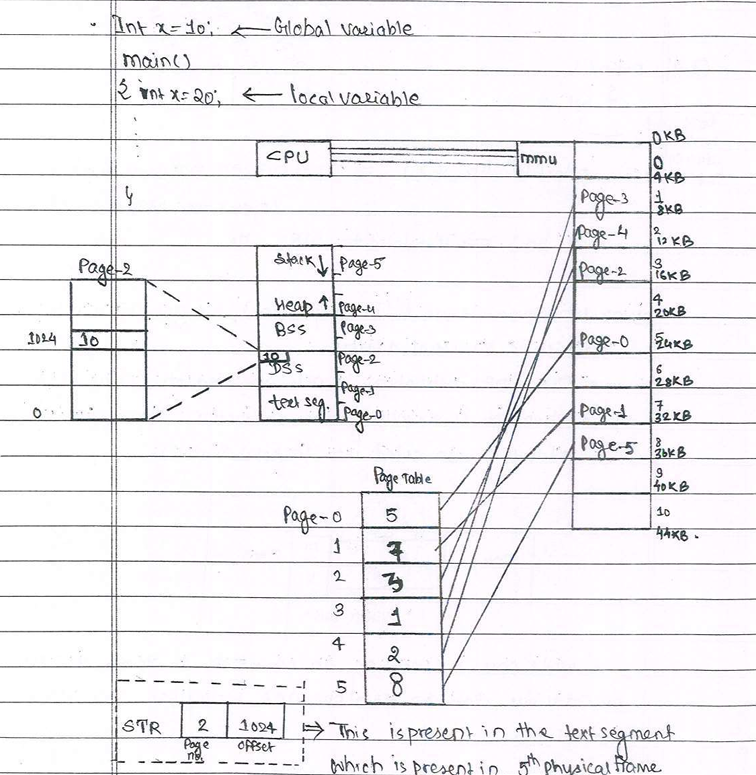 Int x=10; ← Global variable
main()
{ int x=20; ← local variable
}
CPU
mmu
0KB
0
4KB
Page-3 1
8KB
Page-4 2
12KB
Page-2 3
16KB
4
20KB
Page-0 5
24KB
6
28KB
Page-1 7
32KB
Page-5 8
36KB
9
40KB
10
44KB.
Page-2
1024 10
0
Stack ↓ Page-5
Heap ↑ Page-4
BSS Page-3
10 Page-2
DSS
Page-1
text seg. Page-0
Page Table
Page-0 5
1 7
2 3
3 1
4 2
5 8
STR 2 1024 ⇒ This is present in the text segment
Page no. offset
which is present in 5th physical frame